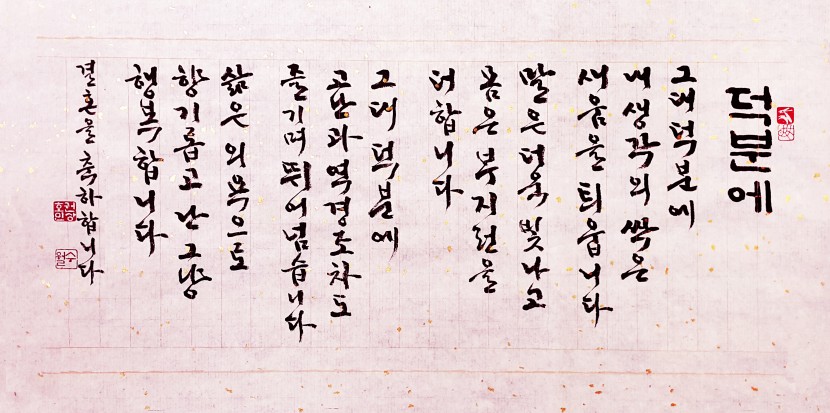 덕분에
그대 덕분에
내 생각의 싹은
새 움을 틔웁니다
말은 더욱 빛나고
몸은 부지런을
더합니다
그대 덕분에
고난과 역경조차도
즐기며 뛰어넘습니다
삶은 의욕으로
향기롭고 난 그냥
행복합니다
결혼을 축하합니다